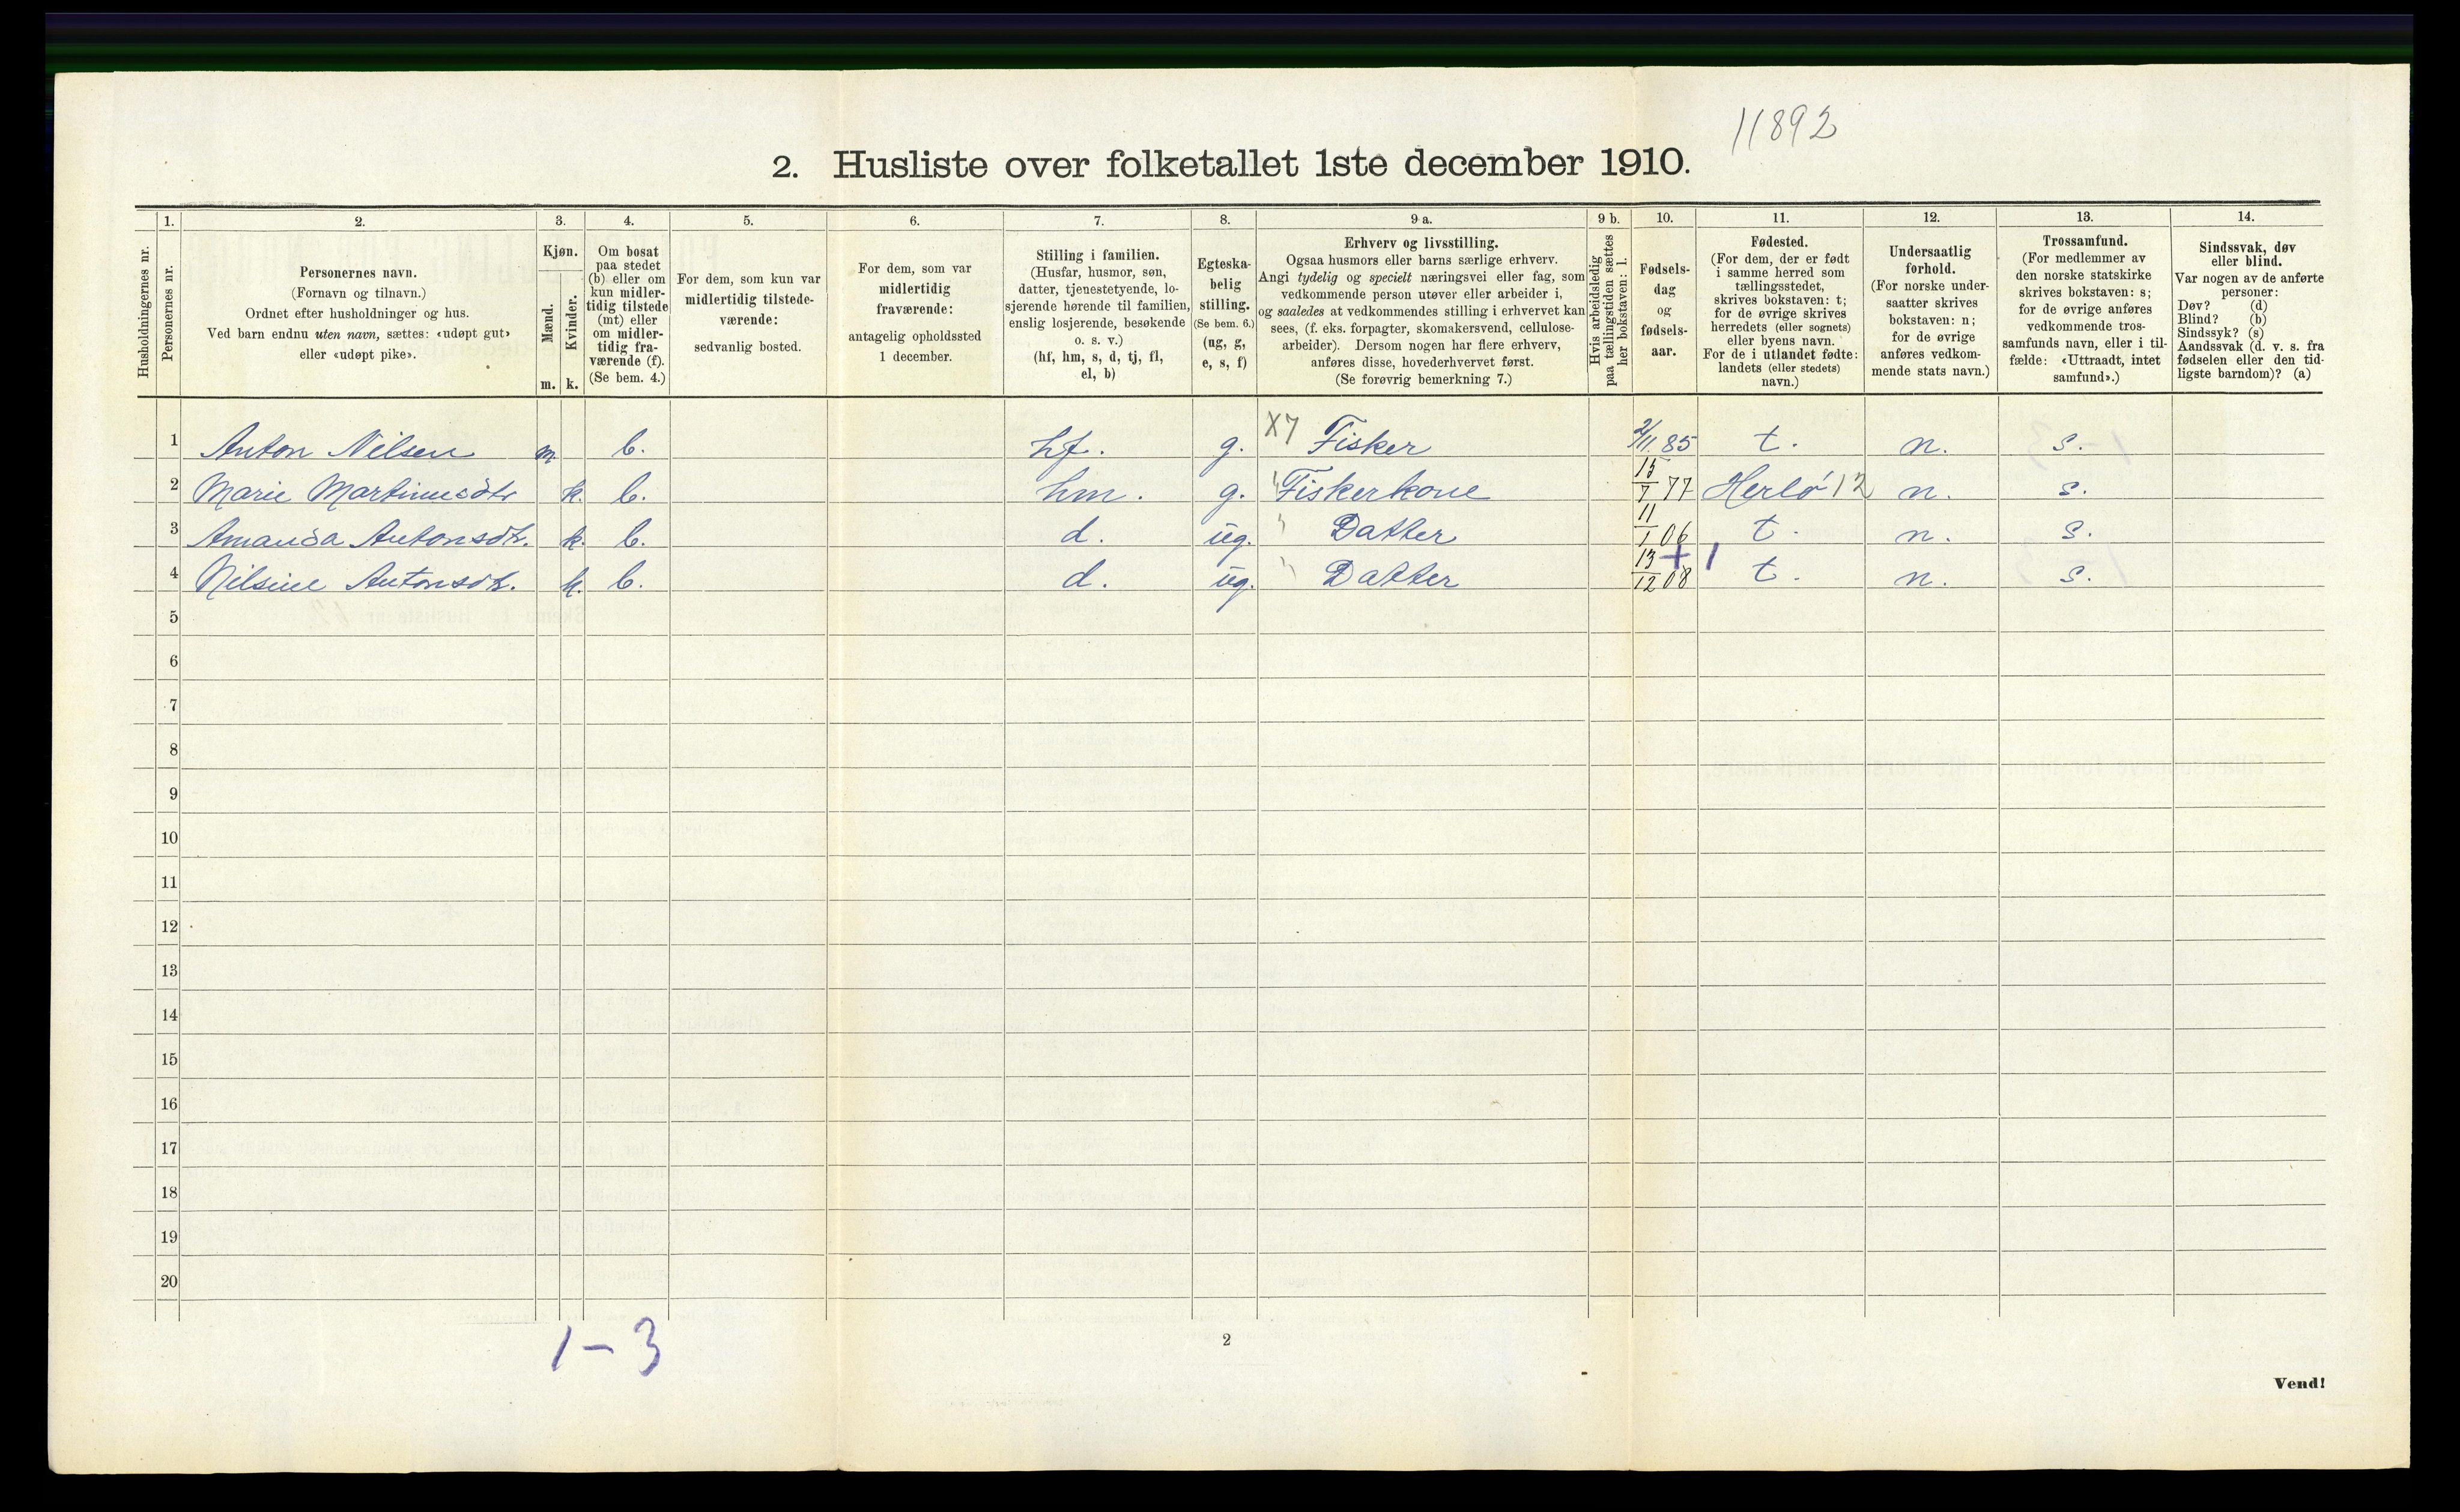 11892
2. Husliste over folketallet 1ste december 1910.
Husholdningernes nr.
1. Personernes nr.
2.
Personernes navn.
(Fornavn og tilnavn.)
Ordnet efter husholdninger og hus.
Ved barn endnu uten navn, sættes: «udøpt gut»
eller «udøpt pike».
3.
Kjøn.
Mænd. m.
Kvinder. k.
4.
Om bosat
paa stedet
(b) eller om
kun midler-
tidig tilstede
(mt) eller
om midler-
tidig fra-
værende (f).
(Se bem. 4.)
5.
For dem, som kun var
midlertidig tilstede-
værende:
sedvanlig bosted.
6.
For dem, som var
midlertidig
fraværende:
antagelig opholdssted
1 december.
7.
Stilling i familien.
(Husfar, husmor, søn,
datter, tjenestetyende, lo-
sjerende hørende til familien,
enslig losjerende, besøkende
o. s. v.)
(hf, hm, s, d, tj, fl,
el, b)
8.
Egteska-
belig
stilling.
(Se bem. 6.)
(ug, g,
e, s, f)
9 a.
Erhverv og livsstilling.
Ogsaa husmors eller barns særlige erhverv.
Angi tydelig og specielt næringsvei eller fag, som
vedkommende person utøver eller arbeider i,
og saaledes at vedkommendes stilling i erhvervet kan
sees, (f. eks. forpagter, skomakersvend, cellulose-
arbeider). Dersom nogen har flere erhverv,
anføres disse, hovederhvervet først.
(Se forøvrig bemerkning 7.)
9 b.
Hvis arbeidsledig
paa tællingstiden sættes
her bokstaven: l.
10.
Fødsels-
dag
og
fødsels-
aar.
11.
Fødested.
(For dem, der er født
i samme herred som
tællingsstedet,
skrives bokstaven: t;
for de øvrige skrives
herredets (eller sognets)
eller byens navn.
For de i utlandet fødte:
landets (eller stedets)
navn.)
12.
Undersaatlig
forhold.
(For norske under-
saatter skrives
bokstaven: n;
for de øvrige
anføres vedkom-
mende stats navn.)
13.
Trossamfund.
(For medlemmer av
den norske statskirke
skrives bokstaven: s;
for de øvrige anføres
vedkommende tros-
samfunds navn, eller i til-
fælde: «Uttraadt, intet
samfund».)
14.
Sindssvak, døv
eller blind.
Var nogen av de anførte
personer:
Døv? (d)
Blind? (b)
Sindssyk? (s)
Aandssvak (d. v. s. fra
fødselen eller den tid-
ligste barndom)? (a)
1 Anton Nilsen m. b. hf. g. X7 Fisker 2/11 85 t. n. s.
2 Marie Martinusdtr k. b. hm. g. " Fiskerkone 15/7 77 Herlö 12 n. s.
3 Amanda Antonsdtr. k. b. d. ug. " Datter 11/1 06 t. n. s.
4 Nilsine Antonsdtr. k. b. d. ug. " Datter 13/12 08 + 1 t. n. s.
5
6
7
8
9
10
11
12
13
14
15
16
17
18
19
20
1 - 3
2
Vend!